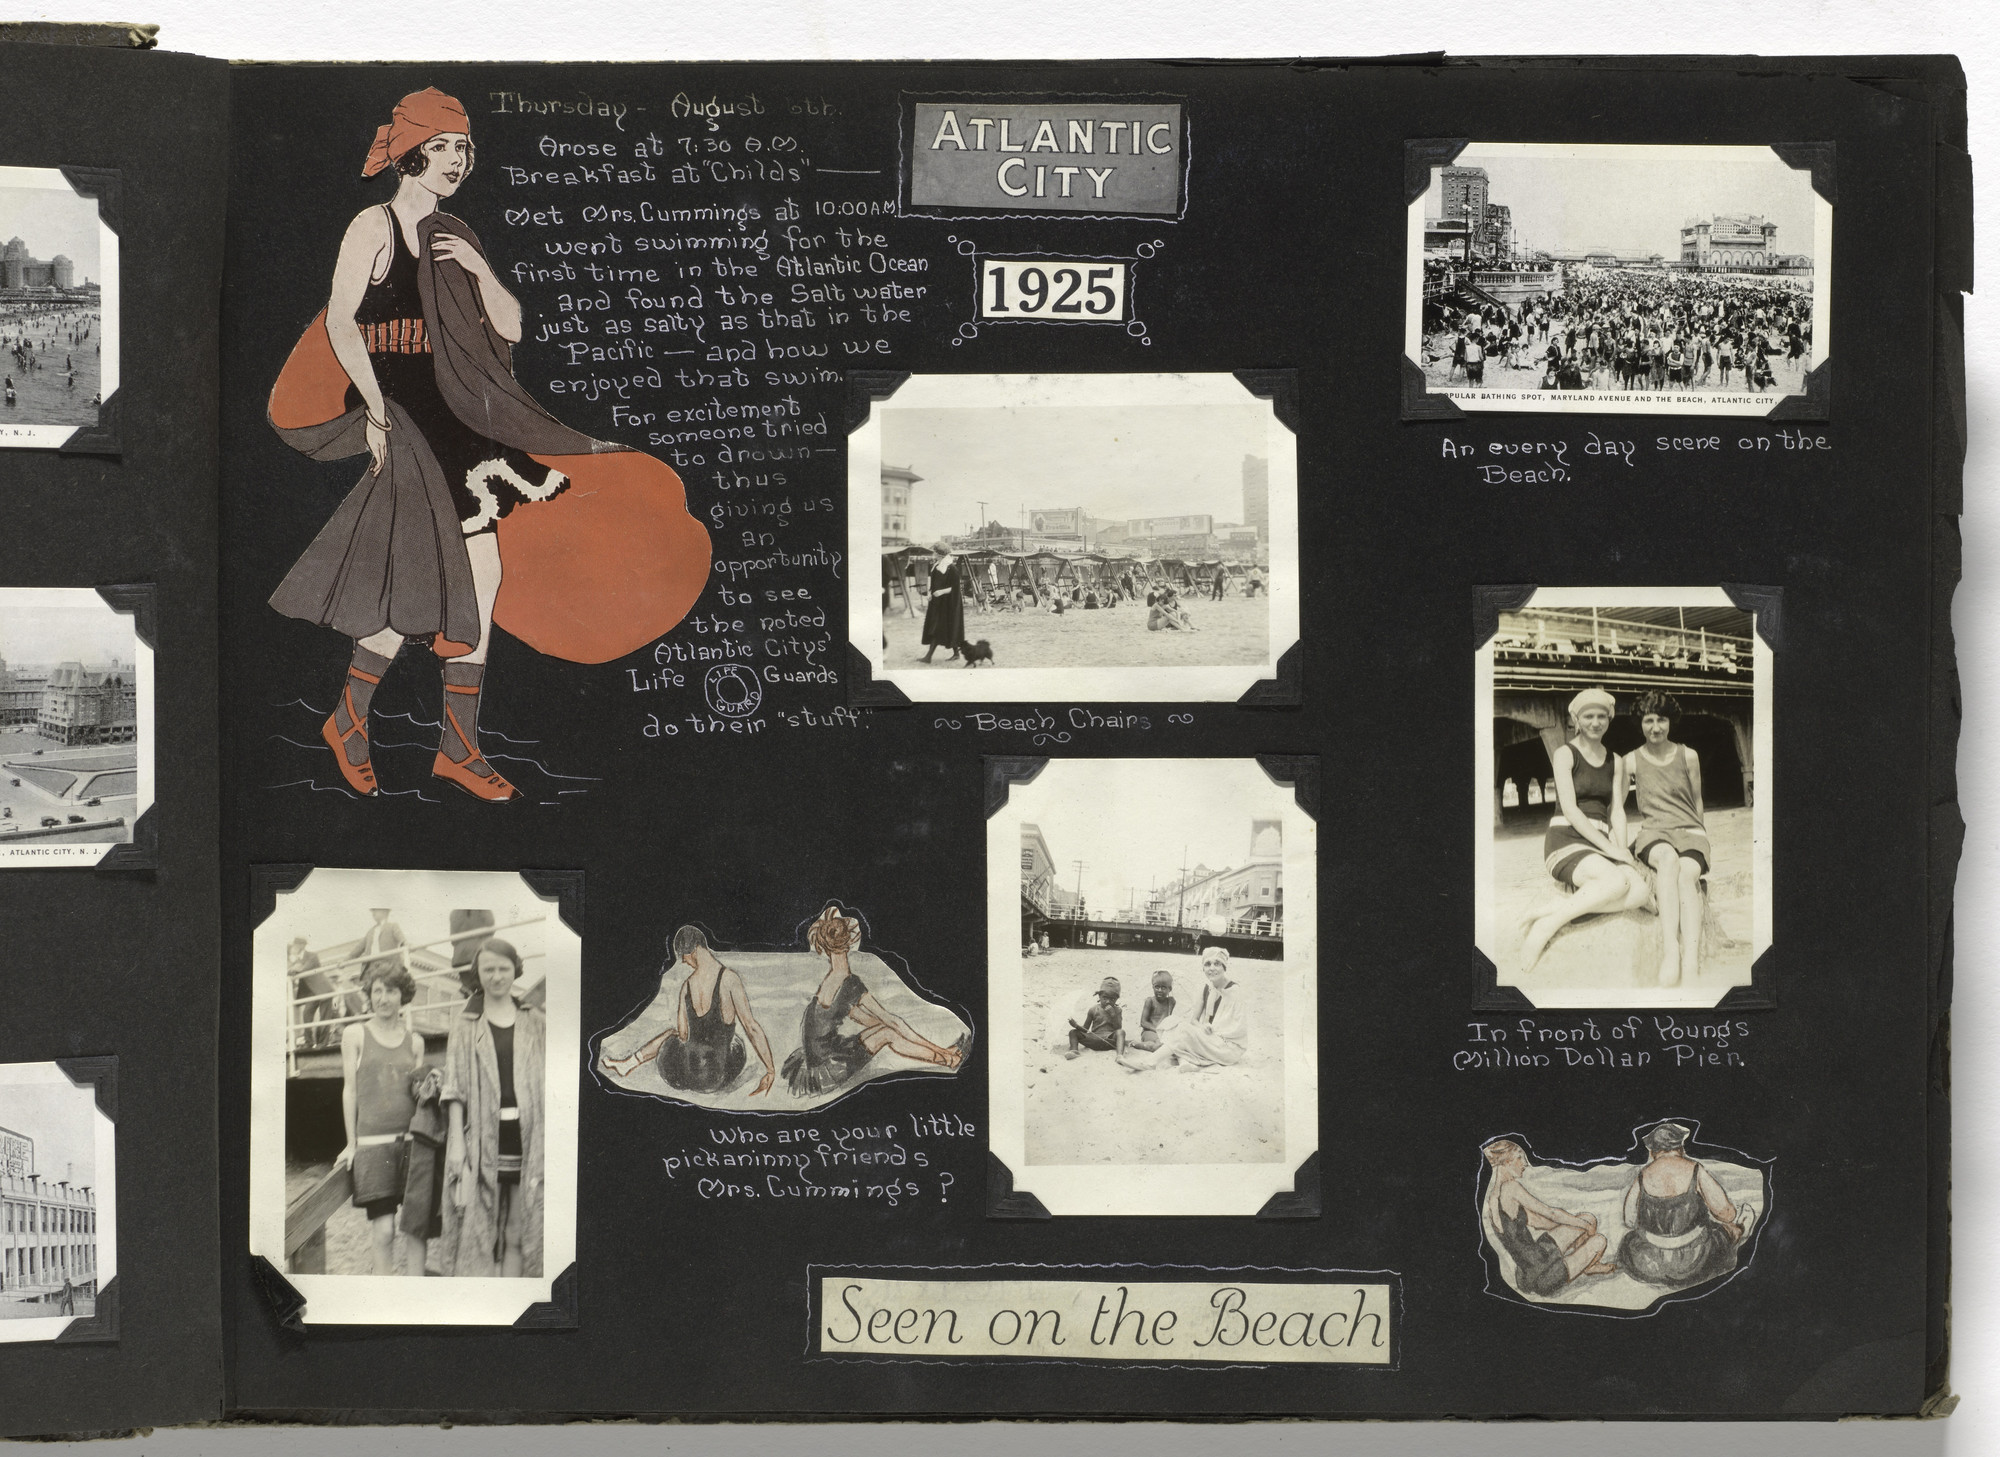 Thursday - August 6th.
Arose at 7:30 A.M.
Breakfast at "Childs" —
Met Mrs. Cummings at 10:00 A.M.
went swimming for the
first time in the Atlantic Ocean
and found the Salt water
just as salty as that in the
Pacific — and how we
enjoyed that swim.
For excitement
someone tried
to drown —
thus
giving us
an
opportunity
to see
the noted
Atlantic Citys'
Life LIFE GUARD Guards
do their "stuff."
ATLANTIC
CITY
1925
OPULAR BATHING SPOT, MARYLAND AVENUE AND THE BEACH, ATLANTIC CITY,
An every day scene on the
Beach.
Beach Chairs
In front of Youngs
Million Dollar Pier.
Who are your little
pickaninny friends
Mrs. Cummings ?
Seen on the Beach
Y, N. J.
, ATLANTIC CITY, N. J.